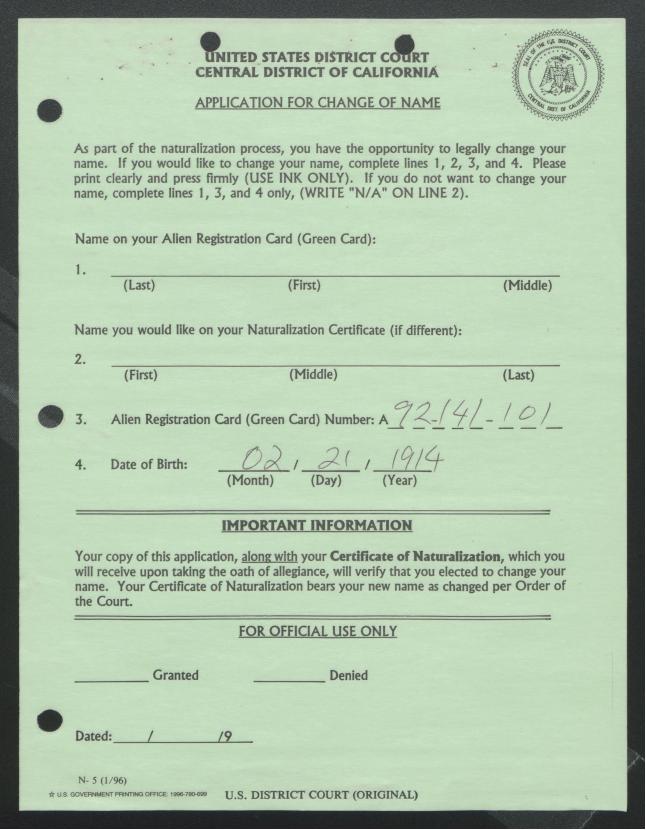 UNITED STATES DISTRICT COURT
CENTRAL DISTRICT OF CALIFORNIA
SEAL OF THE U.S. DISTRICT COURT
CENTRAL DIST. OF CALIFORNIA
APPLICATION FOR CHANGE OF NAME
As part of the naturalization process, you have the opportunity to legally change your
name. If you would like to change your name, complete lines 1, 2, 3, and 4. Please
print clearly and press firmly (USE INK ONLY). If you do not want to change your
name, complete lines 1, 3, and 4 only, (WRITE "N/A" ON LINE 2).
Name on your Alien Registration Card (Green Card):
1.
(Last) (First) (Middle)
Name you would like on your Naturalization Certificate (if different):
2.
(First) (Middle) (Last)
3. Alien Registration Card (Green Card) Number: A 92-141-101
4. Date of Birth: 02 / 21 / 1914
(Month) (Day) (Year)
IMPORTANT INFORMATION
Your copy of this application, along with your Certificate of Naturalization, which you
will receive upon taking the oath of allegiance, will verify that you elected to change your
name. Your Certificate of Naturalization bears your new name as changed per Order of
the Court.
FOR OFFICIAL USE ONLY
Granted Denied
Dated: / /9
N- 5 (1/96)
☆ U.S. GOVERNMENT PRINTING OFFICE: 1996-780-699 U.S. DISTRICT COURT (ORIGINAL)